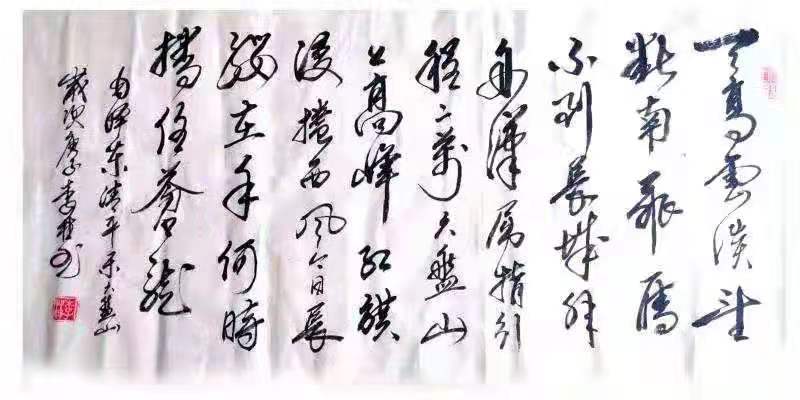 天高雲淡望
断南飛雁
不到長城非
好漢屈指行
程二萬六盤山
上高峰紅旗
漫捲西風今日長
纓在手何時
縛住蒼龍
毛澤東清平樂六盤山
歲次庚子李